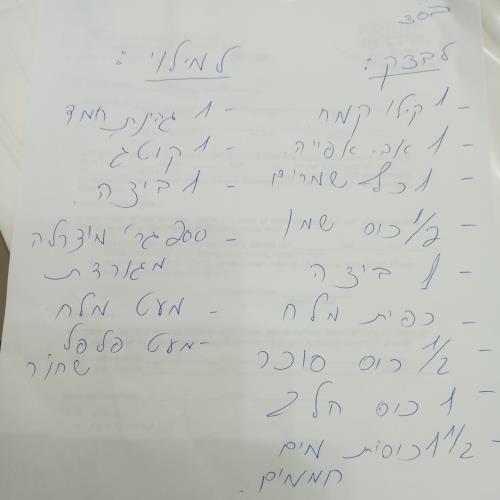 בס"ד
לבצק:
- 1 קילו קמח
- 1 אב. אפייה.
- 1 כף שמרים
- 1/2 כוס שמן
- 1 ביצה
- כפית מלח
- 1/2 כוס סוכר
- 1 כוס חלב
- 1 1/2 כוסית מים
חממים.
למילוי:
- 1 גבינת חמד
- 1 קוטג
- 1 ביצה.
- 200 גר' מוצרלה
מגורדת
- מעט מלח
- מעט פלפל
שחור